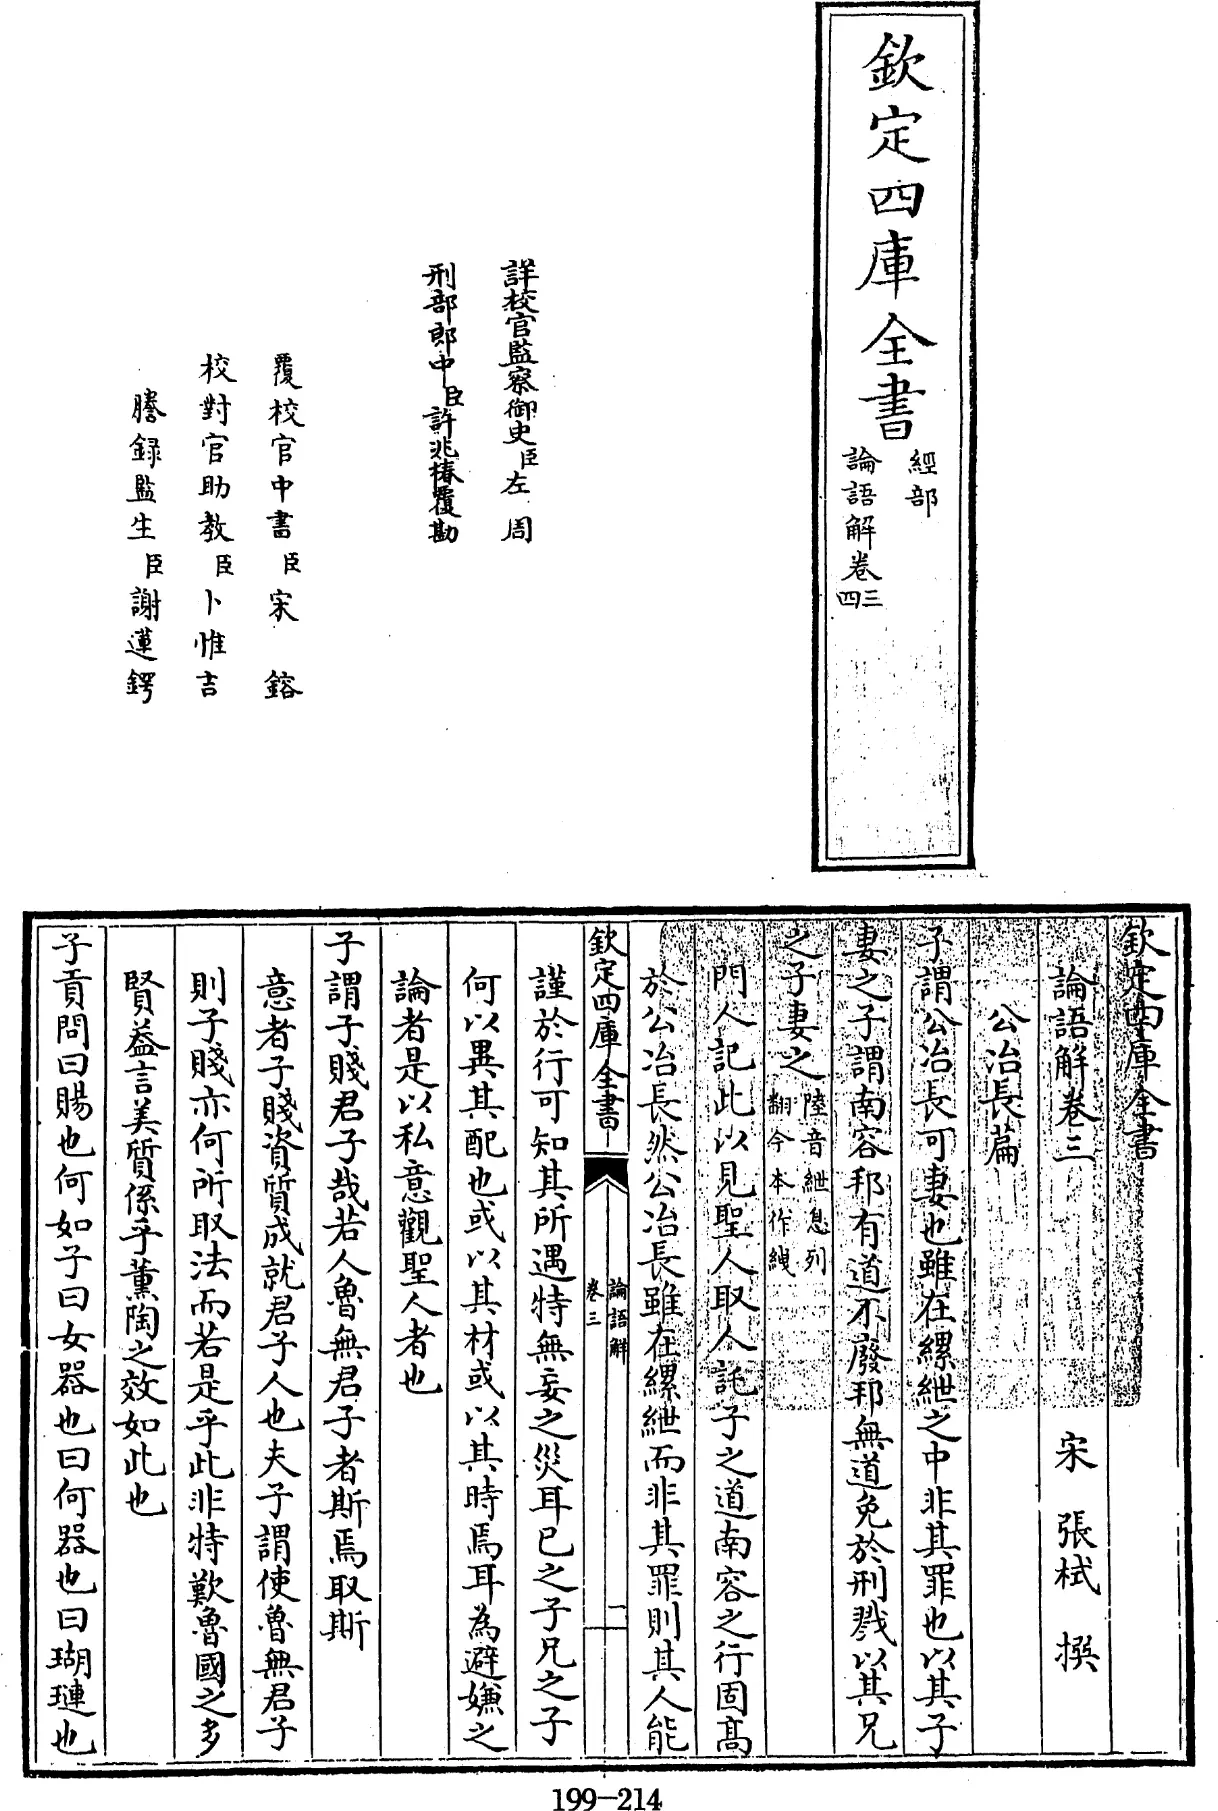 欽定四庫全書
經部
論語解卷三四
詳校官監察御史臣左周
刑部郎中臣許兆椿覆勘
覆校官中書臣宋鎔
校對官助教臣卜惟吉
謄録監生臣謝蓮鍔
欽定四庫全書
論語解卷三
宋 張栻 撰
公冶長篇
子謂公冶長可妻也雖在縲絏之中非其罪也以其子
妻之子謂南容邦有道不廢邦無道免於刑戮以其兄
之子妻之
陸音絏息列
翻今本作絏
門人記此以見聖人取人託子之道南容之行固髙
於公冶長然公冶長雖在縲絏而非其罪則其人能
欽定四庫全書
論語解
卷三
二
謹於行可知其所遇特無妄之災耳已之子兄之子
何以異其配也或以其材或以其時焉耳為避嫌之
論者是以私意觀聖人者也
子謂子賤君子哉若人魯無君子者斯焉取斯
意者子賤資質成就君子人也夫子謂使魯無君子
則子賤亦何所取法而若是乎此非特歎魯國之多
賢益言美質係乎薰陶之效如此也
子貢問曰賜也何如子曰女器也曰何器也曰瑚璉也
199-214